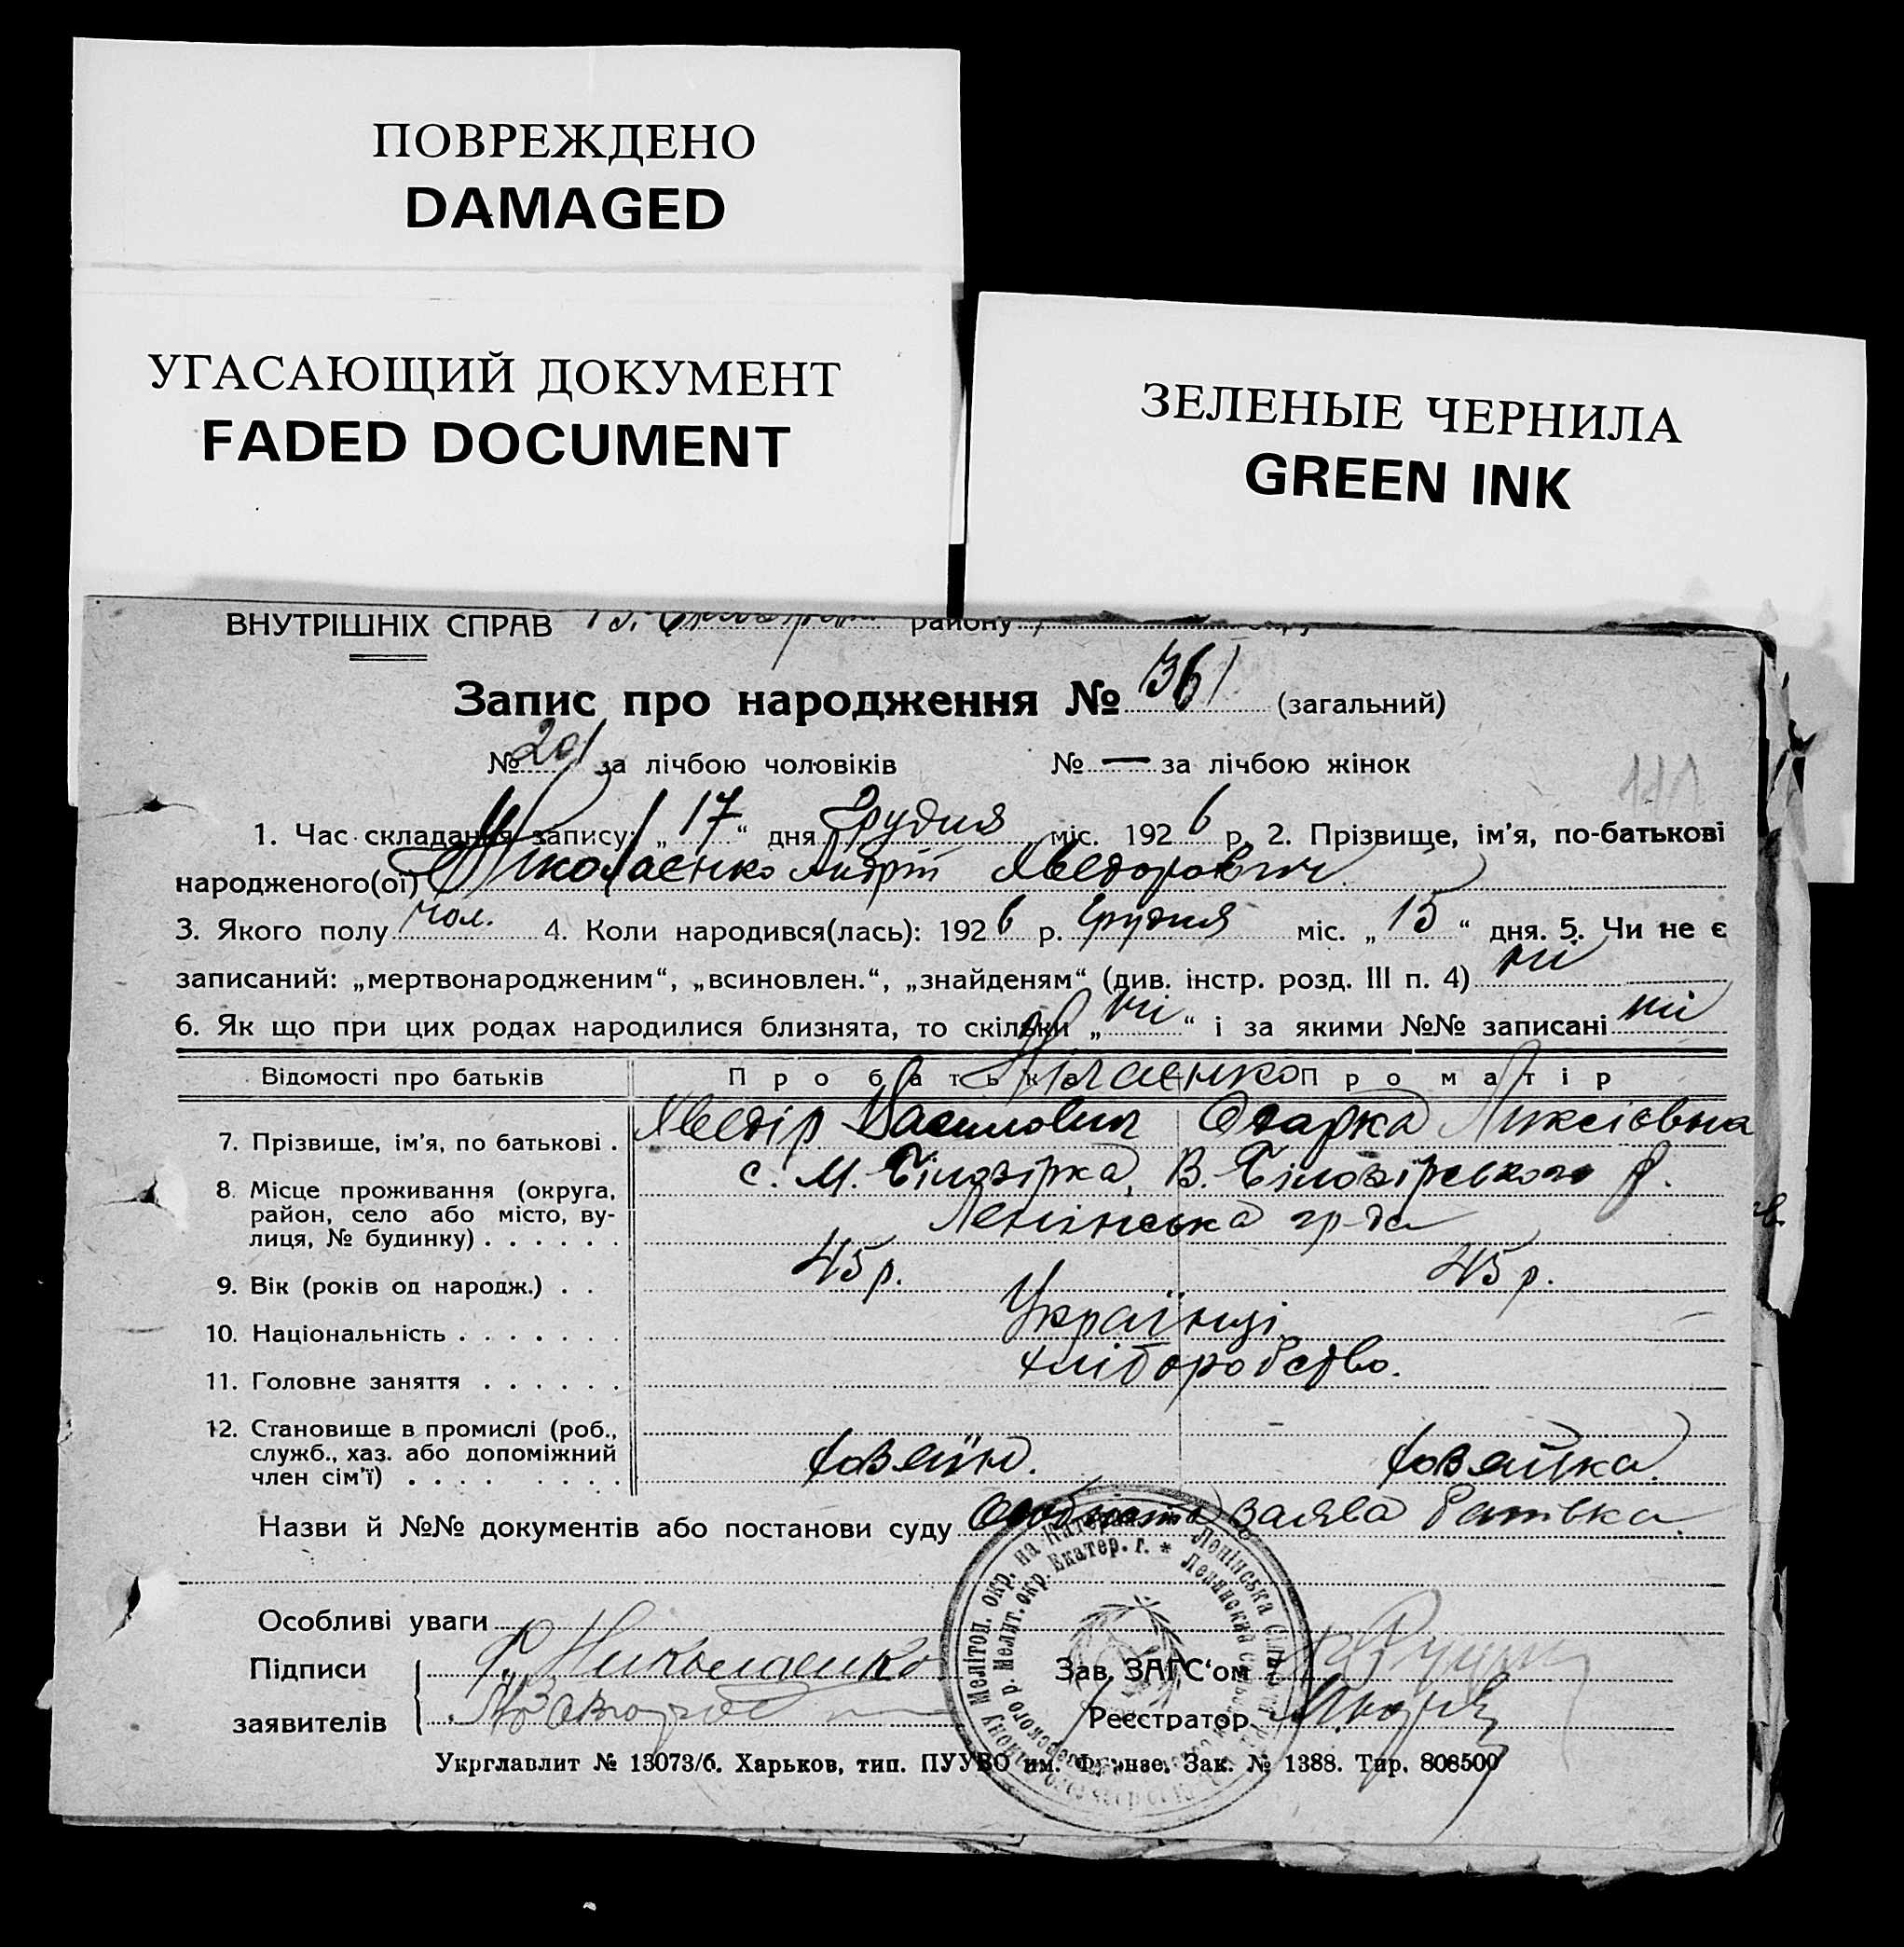 ПОВРЕЖДЕНО
DAMAGED
УГАСАЮЩИЙ ДОКУМЕНТ
FADED DOCUMENT
ЗЕЛЕНЫЕ ЧЕРНИЛА
GREEN INK
ВНУТРІШНІХ СПРАВ району
Запис про народження № 361 (загальний)
№ 201 за лічбою чоловіків № — за лічбою жінок
1. Час складання запису: „17“ дня Грудня міс. 1926 р. 2. Прізвище, ім'я, по-батькові
народженого(ої) Ніколаєнко Андрій Хведорович
3. Якого полу чол. 4. Коли народився(лась): 1926 р. Грудня міс. „15“ дня. 5. Чи не є
записаний: „мертвонародженим“, „всиновлен.“, „знайденям“ (див. інстр. розд. III п. 4) ні
6. Як що при цих родах народилися близнята, то скільки „ні“ і за якими №№ записані ні
Відомості про батьків Про батька Про матір
7. Прізвище, ім'я, по батькові . Хведір Василович Одарка Ликсієвна
8. Місце проживання (округа, с. М. Білозірка, В. Білозірського р.
район, село або місто, ву-
лиця, № будинку) . . . . . . Ленінська гр-да
9. Вік (років од народж.) . . 45 р. 45 р.
10. Національність . . . . . . . Українці
11. Головне заняття . . . . . . хліборобство.
12. Становище в промислі (роб.,
служб., хаз. або допоміжний
член сім'ї) . . . . . . . . хозяїн. хозяйка.
Назви й №№ документів або постанови суду заява батька.
Особливі уваги
Підписи Ф. Николаенко Зав. ЗАГС'ом
заявителів Реєстратор
Укрглавлит № 13073/б. Харьков, тип. ПУУВО им. Фрунзе. Зак. № 1388. Тир. 808500